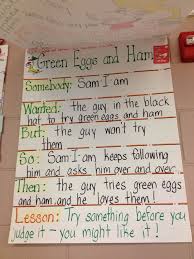 Green Eggs and Ham
Somebody: Sam I am
Wanted: the guy in the black
hat to try green eggs and ham
But: the guy won't try
them
So: Sam I am keeps following
him and asks him over and over
Then: the guy tries green eggs
and ham and he loves them!
Lesson: Try something before you
judge it - you might like it!